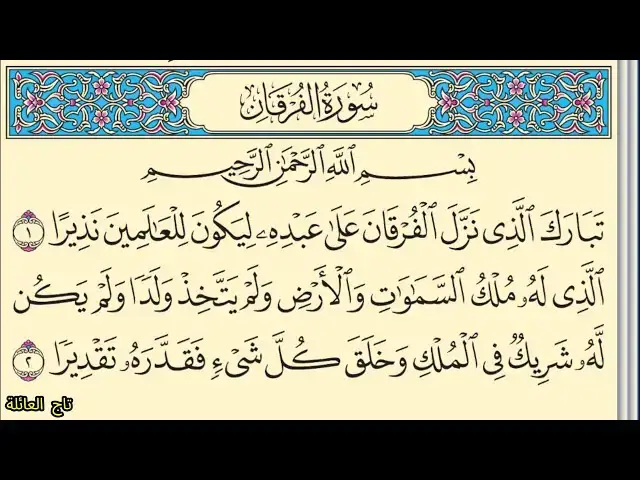 سُورَةُ الْفُرْقَانِ
بِسْمِ ٱللَّهِ ٱلرَّحْمَٰنِ ٱلرَّحِيمِ
تَبَارَكَ ٱلَّذِى نَزَّلَ ٱلْفُرْقَانَ عَلَىٰ عَبْدِهِۦ لِيَكُونَ لِلْعَٰلَمِينَ نَذِيرًا ١
ٱلَّذِى لَهُۥ مُلْكُ ٱلسَّمَٰوَٰتِ وَٱلْأَرْضِ وَلَمْ يَتَّخِذْ وَلَدًا وَلَمْ يَكُن
لَّهُۥ شَرِيكٌ فِى ٱلْمُلْكِ وَخَلَقَ كُلَّ شَىْءٍ فَقَدَّرَهُۥ تَقْدِيرًا ٢
تاج العائلة